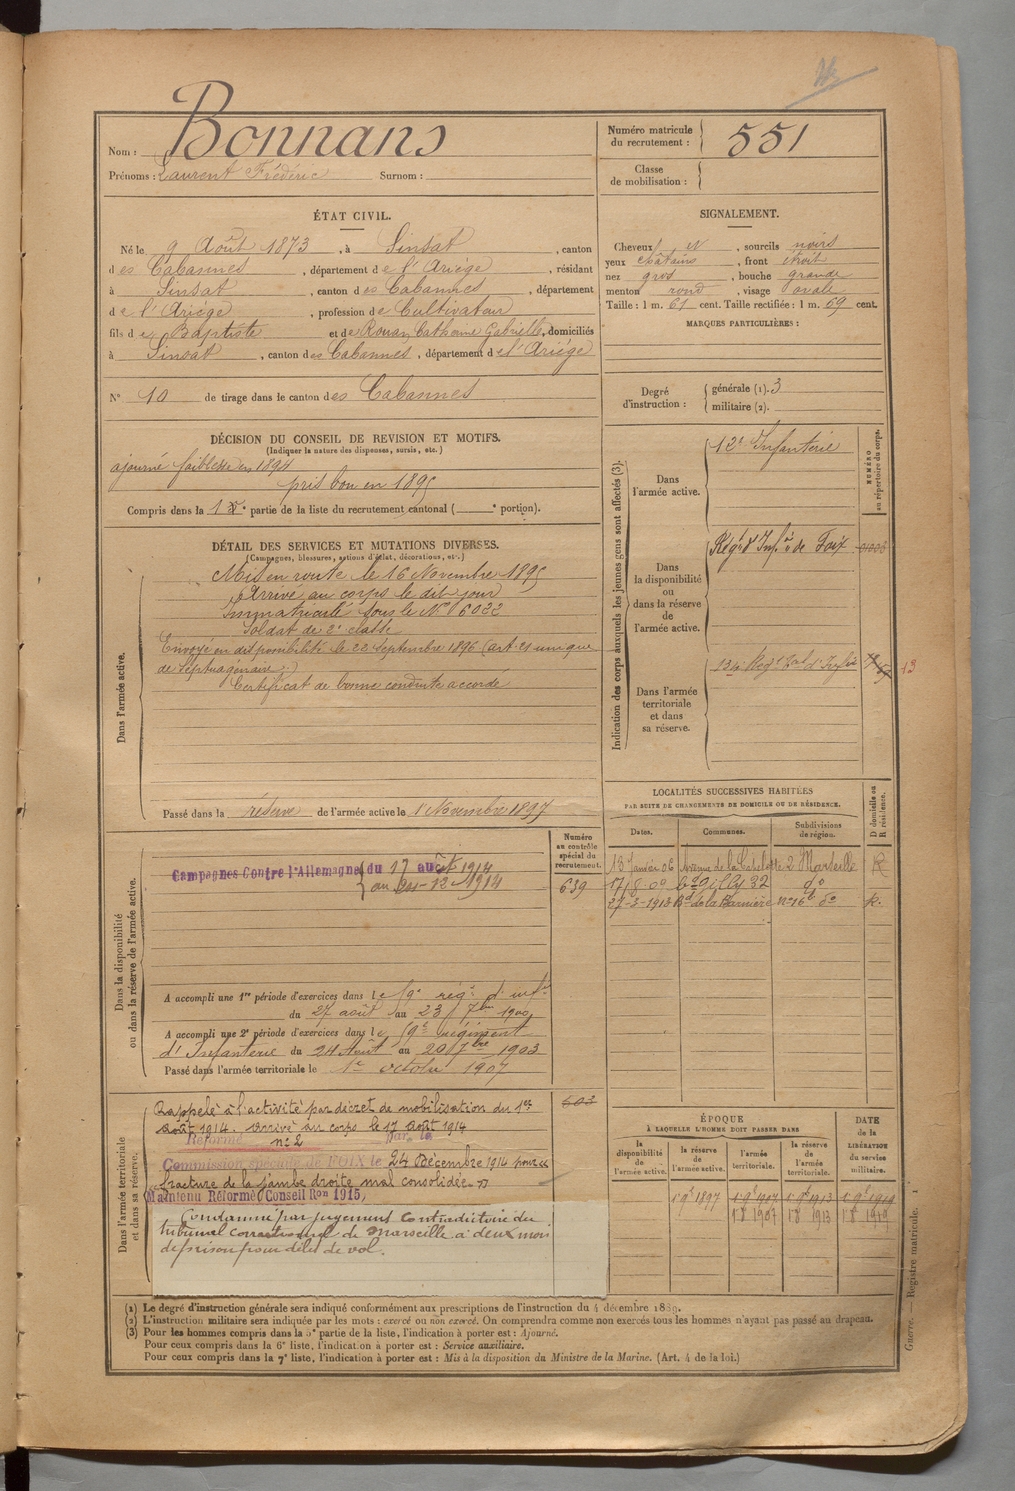 Nom : Bonnans
Prénoms : Laurent Frédéric Surnom :
Numéro matricule du recrutement : 551
Classe de mobilisation :
ÉTAT CIVIL.
Né le 9 Août 1873, à Sinsat, canton
des Cabannes, département de l'Ariège, résidant
à Sinsat, canton des Cabannes, département
de l'Ariège, profession de Cultivateur
fils de Baptiste et de Rouan Catherine Gabrielle, domiciliés
à Sinsat, canton des Cabannes, département de l'Ariège
N° 10 de tirage dans le canton des Cabannes
SIGNALEMENT.
Cheveux et, sourcils noirs
yeux châtains, front étroit
nez gros, bouche grande
menton rond, visage ovale
Taille : 1 m. 61 cent. Taille rectifiée : 1 m. 69 cent.
MARQUES PARTICULIÈRES :
Degré d'instruction : générale (1). 3
militaire (2).
DÉCISION DU CONSEIL DE REVISION ET MOTIFS.
(Indiquer la nature des dispenses, sursis, etc.)
ajourné faiblesse en 1894
pris bon en 1895
Compris dans la 1e partie de la liste du recrutement cantonal ( e portion).
DÉTAIL DES SERVICES ET MUTATIONS DIVERSES.
(Campagnes, blessures, actions d'éclat, décorations, etc.)
Dans l'armée active.
Mis en route le 16 Novembre 1895
Arrivé au corps le dit jour
Immatriculé sous le N° 6022
Soldat de 2e classe
Envoyé en disponibilité le 22 Septembre 1896 (art. 21 unique
de septuagénaire)
Certificat de bonne conduite accordé
Passé dans la réserve de l'armée active le 1 Novembre 1897
Indication des corps auxquels les jeunes gens sont affectés (3).
NUMÉRO au répertoire du corps.
Dans l'armée active.
12e Infanterie
Dans la disponibilité ou dans la réserve de l'armée active.
Régt d'Infie de Foix
Dans l'armée territoriale et dans sa réserve.
134e Régt Tal d'Infie
13
Dans la disponibilité ou dans la réserve de l'armée active.
Numéro au contrôle spécial du recrutement.
639
Campagnes Contre l'Allemagne du 17 août 1914
au 24-12-1914
A accompli une 1re période d'exercices dans le 59e rég. d'infie
du 27 août au 23 7bre 1900
A accompli une 2e période d'exercices dans le 59e régiment
d'Infanterie du 24 Août au 20 7bre 1903
Passé dans l'armée territoriale le 1er octobre 1907
LOCALITÉS SUCCESSIVES HABITÉES
PAR SUITE DE CHANGEMENTS DE DOMICILE OU DE RÉSIDENCE.
Dates. Communes. Subdivisions de région. D domicile ou R résidence.
13 janvier 06 Avenue de la Capelette 2 Marseille R
17/8 09 Bd Gilly 32 do
27-3-1913 Bd de la Barnière n° 16b do R.
Dans l'armée territoriale et dans sa réserve.
603
Rappelé à l'activité par décret de mobilisation du 1er
Août 1914. Arrivé au corps le 17 Août 1914
Réformé n° 2 par la
Commission spéciale de FOIX le 24 Décembre 1914 pour
fracture de la jambe droite mal consolidée
Maintenu Réformé Conseil Ron 1915,
Condamné par jugement contradictoire du
tribunal correctionnel de Marseille à deux mois
de prison pour délit de vol.
ÉPOQUE
À LAQUELLE L'HOMME DOIT PASSER DANS
DATE de la LIBÉRATION du service militaire.
la disponibilité de l'armée active. la réserve de l'armée active. l'armée territoriale. la réserve de l'armée territoriale.
1 9b 1897 1 9b 1907 1 9b 1913 1 9b 1919
1 8 1907 1 8 1913 1 8 1919
(1) Le degré d'instruction générale sera indiqué conformément aux prescriptions de l'instruction du 4 décembre 1889.
(2) L'instruction militaire sera indiquée par les mots : exercé ou non exercé. On comprendra comme non exercés tous les hommes n'ayant pas passé au drapeau.
(3) Pour les hommes compris dans la 5e partie de la liste, l'indication à porter est : Ajourné.
Pour ceux compris dans la 6e liste, l'indication à porter est : Service auxiliaire.
Pour ceux compris dans la 7e liste, l'indication à porter est : Mis à la disposition du Ministre de la Marine. (Art. 4 de la loi.)
Guerre. — Registre matricule. 1